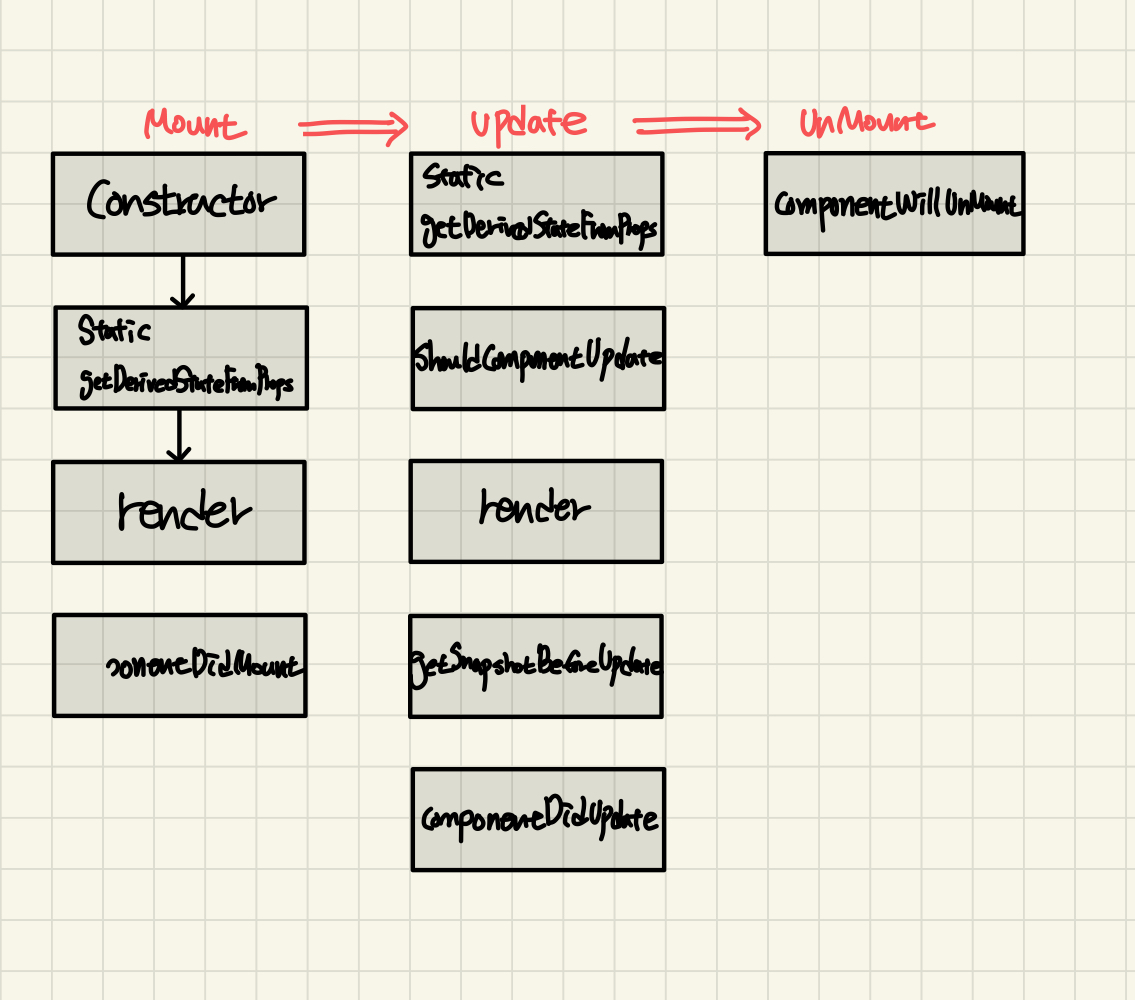 Mount
update
UnMount
Constractor
Static
getDerivedStateFromProps
render
ponentDidMount
Static
getDerivedStateFromProps
ShouldComponentUpdate
render
getSnapshotBeforeUpdate
componentDidUpdate
componentWillUnMount